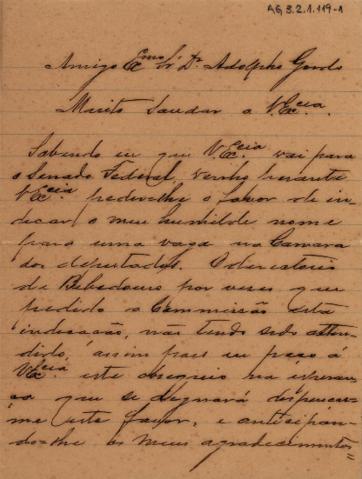 AG 3.2.1.119-1
Amigo Exmo Sr Dr Adolpho Gordo
Muito Saudar a V. Excia.
Sabendo eu que V. Excia vai para
o Senado Federal venho perante
V. Excia pedir-lhe o favor de in-
decar o meu humilde nome
para uma vaga na Camara
dos deputados. O directorio
de Bebedouro por vezes que
pedido a Commissão esta
indicação, não tendo sido atten-
dido, é assim pois eu peço á
V. Excia. este obsequio na esperan-
sa que se dignará dispensar-
me este favor, e anticipan-
do-lhe os meus agradecimentos